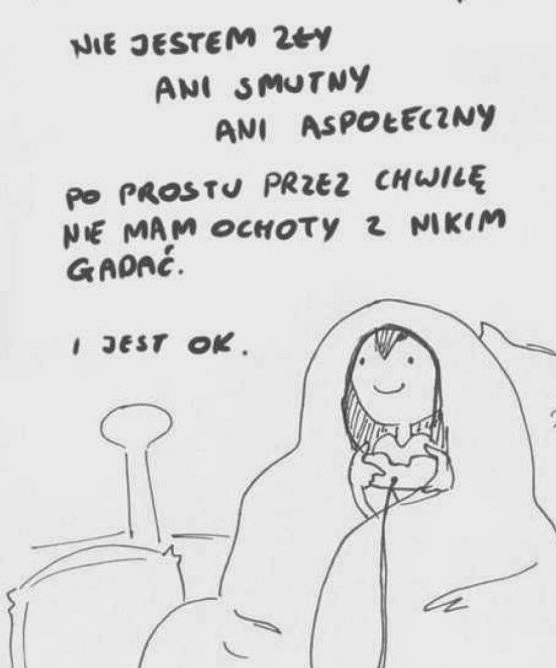 NIE JESTEM ZŁY
ANI SMUTNY
ANI ASPOŁECZNY
PO PROSTU PRZEZ CHWILĘ
NIE MAM OCHOTY Z NIKIM
GADAĆ.
I JEST OK.